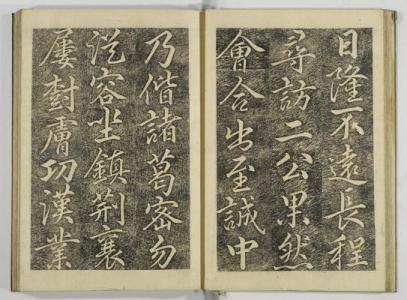 日隆不遠長程
尋訪二公果然
會合出至誠中
乃偕諸葛密勿
從容坐鎮荊襄
屢對膚功漢業